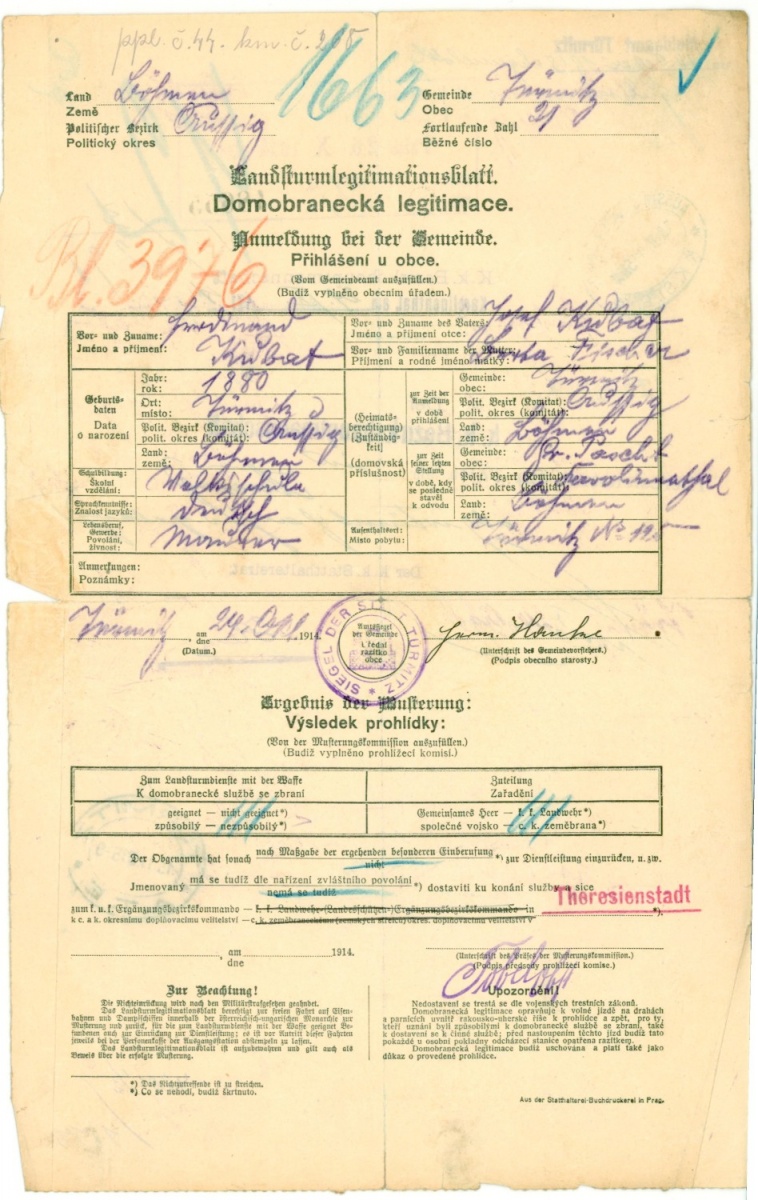 ppl. č. 44. km. č. 205
1663
Land Böhmen
Země
Gemeinde Türmitz
Obec
Politischer Bezirk Aussig
Politický okres
Fortlaufende Zahl 21
Běžné číslo
Landsturmlegitimationsblatt.
Domobranecká legitimace.
Anmeldung bei der Gemeinde.
Přihlášení u obce.
(Vom Gemeindeamt auszufüllen.)
(Budiž vyplněno obecním úřadem.)
Bl. 3976
Vor- und Zuname: Ferdinand
Jméno a příjmení: Kubat
Vor- und Zuname des Vaters: Josef Kubat
Jméno a příjmení otce:
Vor- und Familienname der Mutter: Fischer
Příjmení a rodné jméno matky:
Geburtsdaten
Data o narození
Jahr: 1880
rok:
Ort: Türmitz
místo:
Polit. Bezirk (Komitat): Aussig
polit. okres (komitát):
Land: Böhmen
země:
(Heimatsberechtigung)
(Zuständigkeit)
(domovská příslušnost)
zur Zeit der Anmeldung
v době přihlášení
Gemeinde: Türmitz
obec:
Polit. Bezirk (Komitat): Aussig
polit. okres (komitát):
Land: Böhmen
země:
zur Zeit seiner letzten Stellung
v době, kdy se posledně stavěl k odvodu
Gemeinde:
obec:
Polit. Bezirk (Komitat): Karolinenthal
polit. okres (komitát):
Land: Böhmen
země:
Schulbildung: Volksschule
Školní vzdělání:
Sprachkenntnisse: deutsch
Znalost jazyků:
Lebensberuf, Gewerbe: Maurer
Povolání, živnost:
Aufenthaltsort: Türmitz No 195
Místo pobytu:
Anmerkungen:
Poznámky:
Türmitz, am 24. Okt. 1914.
dne
(Datum.)
SIEGEL DER STADT TÜRMITZ
Amtssiegel der Gemeinde
Úřední razítko obce
Herm.
(Unterschrift des Gemeindevorstehers.)
(Podpis obecního starosty.)
Ergebnis der Musterung:
Výsledek prohlídky:
(Von der Musterungskommission auszufüllen.)
(Budiž vyplněno prohlížecí komisí.)
Zum Landsturmdienste mit der Waffe
K domobranecké službě se zbraní
Zuteilung
Zařadění
geeignet — nicht geeignet*)
způsobilý — nezpůsobilý*)
Gemeinsames Heer — k. k. Landwehr*)
společné vojsko — c. k. zeměbrana*)
Der Obgenannte hat sonach nach Maßgabe der ergehenden besonderen Einberufung
nicht *) zur Dienstleistung einzurücken, u. zw.
Jmenovaný má se tudíž dle nařízení zvláštního povolání
nemá se tudíž *) dostaviti ku konání služby a sice
zum k. u. k. Ergänzungsbezirkskommando — k. k. Landwehr-(Landesschützen-)Ergänzungsbezirkskommando in Theresienstadt *).
k c. a k. okresnímu doplňovacímu velitelství — c. k. zeměbraneckému (zemských střelců) okresn. doplňovacímu velitelství v
, am 1914.
dne
(Unterschrift des Präses der Musterungskommission.)
(Podpis předsedy prohlížecí komise.)
Zur Beachtung!
Die Nichteinrückung wird nach den Militärstrafgesetzen geahndet.
Das Landsturmlegitimationsblatt berechtigt zur freien Fahrt auf Eisen-
bahnen und Dampfschiffen innerhalb der österreichisch-ungarischen Monarchie zur
Musterung und zurück, für die zum Landsturmdienste mit der Waffe geeignet Be-
fundenen auch zur Einrückung zur Dienstleistung; es ist vor Antritt dieser Fahrten
jeweils bei der Personenkasse der Ausgangsstation abstempeln zu lassen.
Das Landsturmlegitimationsblatt ist aufzubewahren und gilt auch als
Beweis über die erfolgte Musterung.
Upozornění!
Nedostavení se trestá se dle vojenských trestních zákonů.
Domobranecká legitimace opravňuje k volné jízdě na drahách
a parnících uvnitř rakousko-uherské říše k prohlídce a zpět, pro ty,
kteří uznáni byli způsobilými k domobranecké službě se zbraní, také
k dostavení se k činné službě; před nastoupením těchto jízd budiž tato
pokaždé u osobní pokladny odcházecí stanice opatřena razítkem.
Domobranecká legitimace budiž uschována a platí také jako
důkaz o provedené prohlídce.
*) Das Nichtzutreffende ist zu streichen.
*) Co se nehodí, budiž škrtnuto.
Aus der Statthalterei-Buchdruckerei in Prag.